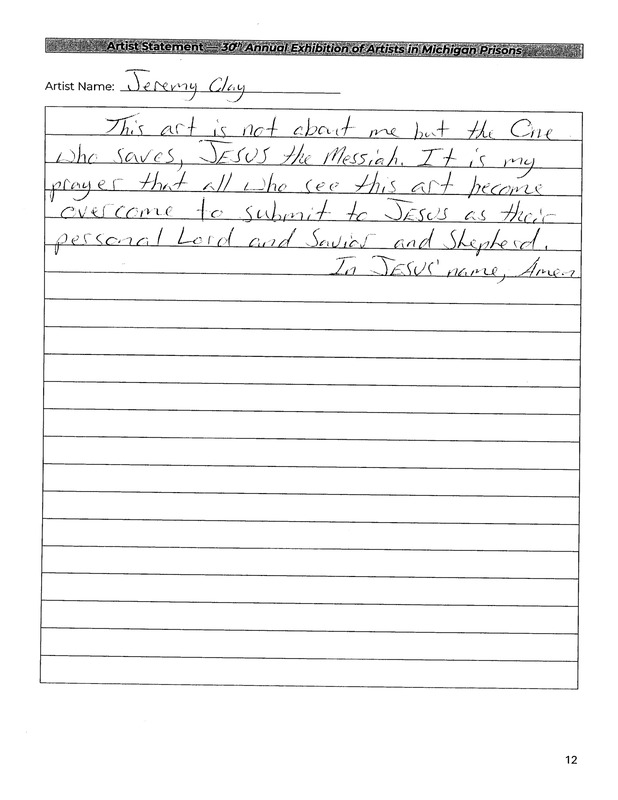 Artist Statement — 30th Annual Exhibition of Artists in Michigan Prisons
Artist Name: Jeremy Clay
This art is not about me but the One
who saves, JESUS the Messiah. It is my
prayer that all who see this art become
overcome to submit to JESUS as their
personal Lord and Savior and Shepherd.
In JESUS' name, Amen
12